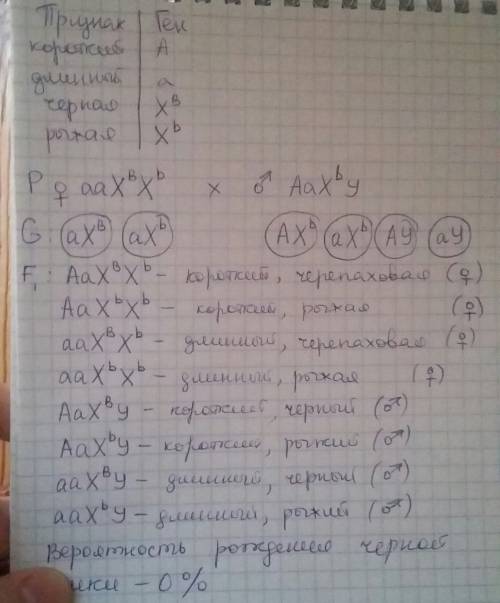 Признак | Ген
короткий | A
длинный | a
черная | Xᴮ
рыжая | Xᵇ
P ♀ aaXᴮXᵇ x ♂ AaXᵇY
G: aXᴮ aXᵇ AXᵇ aXᵇ AY aY
F₁: AaXᴮXᵇ – короткий, черепаховая (♀)
AaXᵇXᵇ – короткий, рыжая (♀)
aaXᴮXᵇ – длинный, черепаховая (♀)
aaXᵇXᵇ – длинный, рыжая (♀)
AaXᴮY – короткий, черный (♂)
AaXᵇY – короткий, рыжий (♂)
aaXᴮY – длинный, черный (♂)
aaXᵇY – длинный, рыжий (♂)
Вероятность рождения черной
– 0%